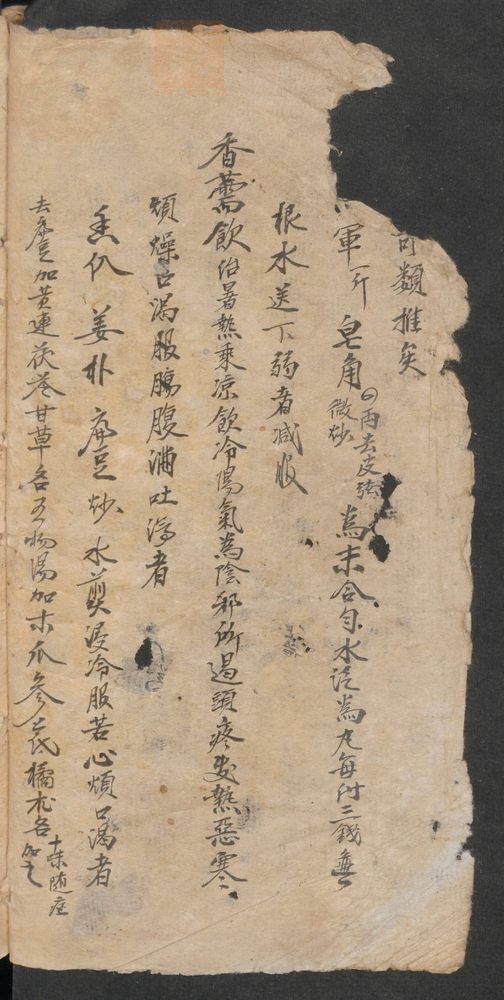 可類推矣
軍一斤 皂角四両去皮弦微炒 為末合匀水泛為丸每付三錢
根水送下弱者減服
香薷飲治暑熱乘凉飲冷陽氣為陰邪所遏頭疼發熱惡寒
煩燥口渴服腸腹滿吐瀉者
香仈 姜朴 扁豆炒 水煎浸冷服若心煩口渴者
去扁豆加黄連茯苓甘草名五物湯加木瓜參芪橘朮名十味随症